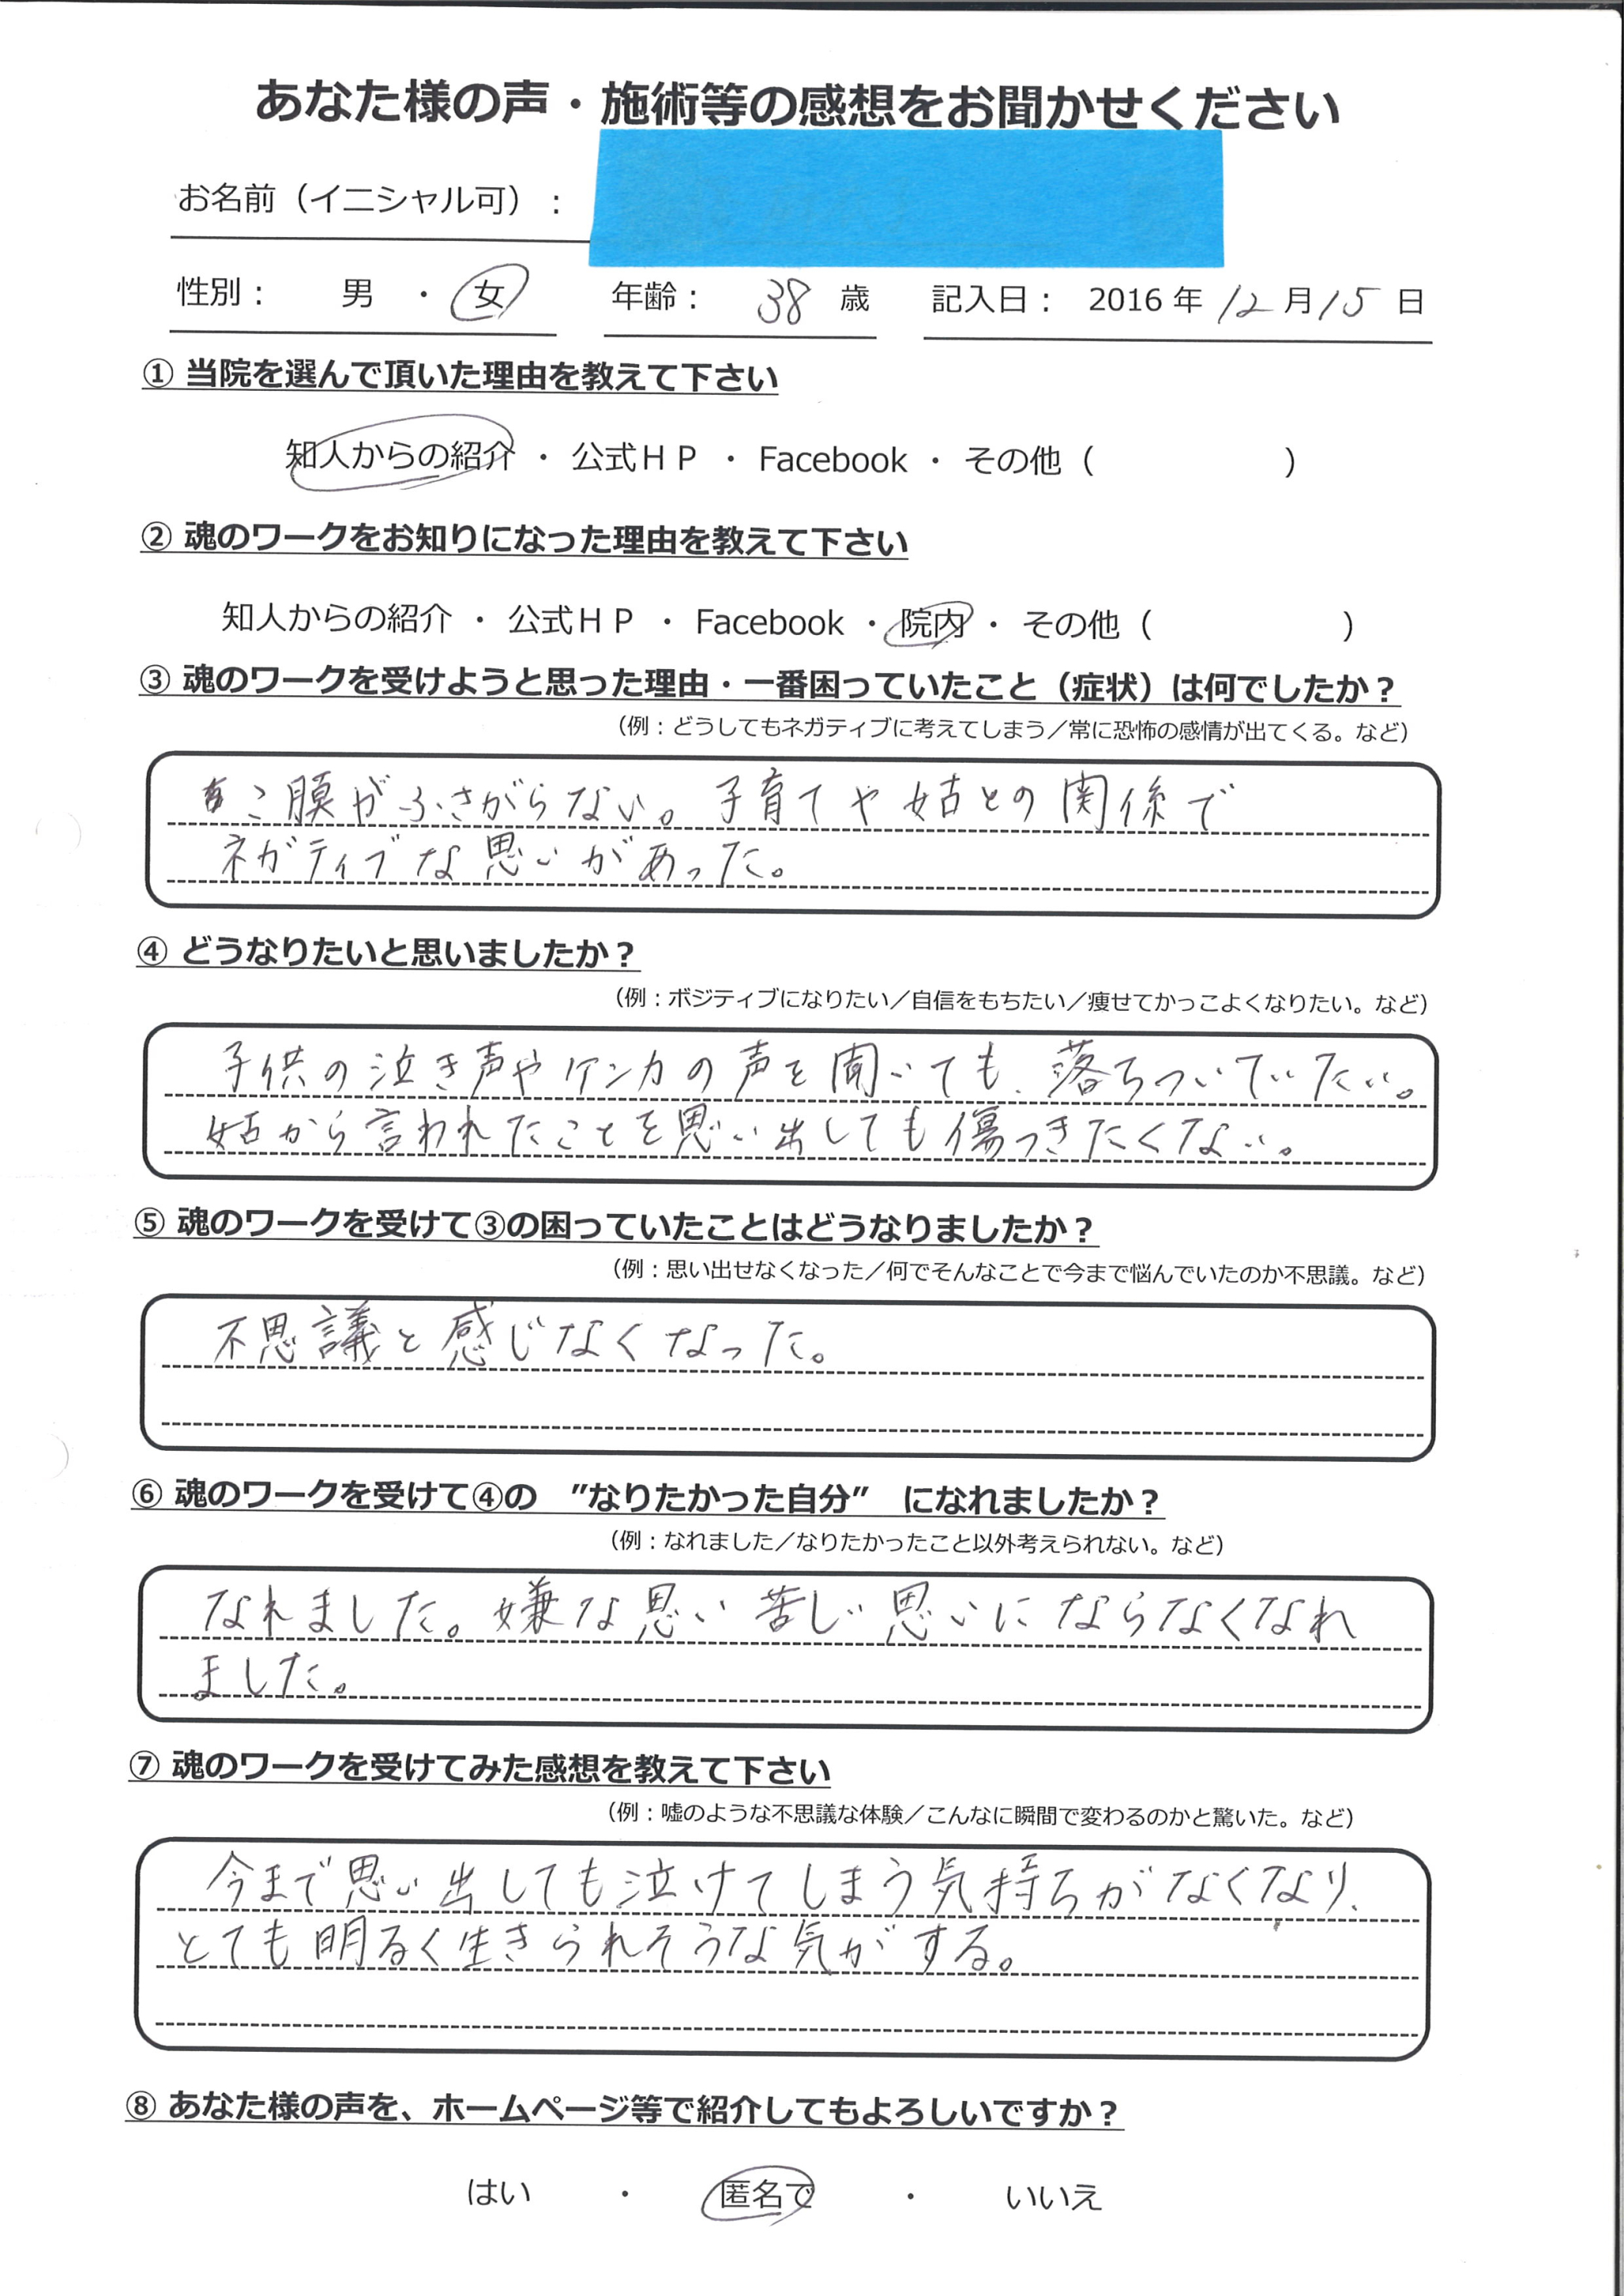 あなた様の声・施術等の感想をお聞かせください
お名前（イニシャル可）：
性別： 男 ・ 女 年齢： 38 歳 記入日： 2016 年 12 月 15 日
① 当院を選んで頂いた理由を教えて下さい
知人からの紹介 ・ 公式ＨＰ ・ Facebook ・ その他（ ）
② 魂のワークをお知りになった理由を教えて下さい
知人からの紹介 ・ 公式ＨＰ ・ Facebook ・ 院内 ・ その他（ ）
③ 魂のワークを受けようと思った理由・一番困っていたこと（症状）は何でしたか？
（例：どうしてもネガティブに考えてしまう／常に恐怖の感情が出てくる。など）
こ膜がふさがらない。子育てや姑との関係で
ネガティブな思いがあった。
④ どうなりたいと思いましたか？
（例：ポジティブになりたい／自信をもちたい／痩せてかっこよくなりたい。など）
子供の泣き声やケンカの声を聞いても、落ちついていたい。
姑から言われたことを思い出しても傷つきたくない。
⑤ 魂のワークを受けて③の困っていたことはどうなりましたか？
（例：思い出せなくなった／何でそんなことで今まで悩んでいたのか不思議。など）
不思議と感じなくなった。
⑥ 魂のワークを受けて④の ”なりたかった自分” になれましたか？
（例：なれました／なりたかったこと以外考えられない。など）
なれました。嫌な思い苦しい思いにならなくなれ
ました。
⑦ 魂のワークを受けてみた感想を教えて下さい
（例：嘘のような不思議な体験／こんなに瞬間で変わるのかと驚いた。など）
今まで思い出しても泣けてしまう気持ちがなくなり、
とても明るく生きられそうな気がする。
⑧ あなた様の声を、ホームページ等で紹介してもよろしいですか？
はい ・ 匿名で ・ いいえ